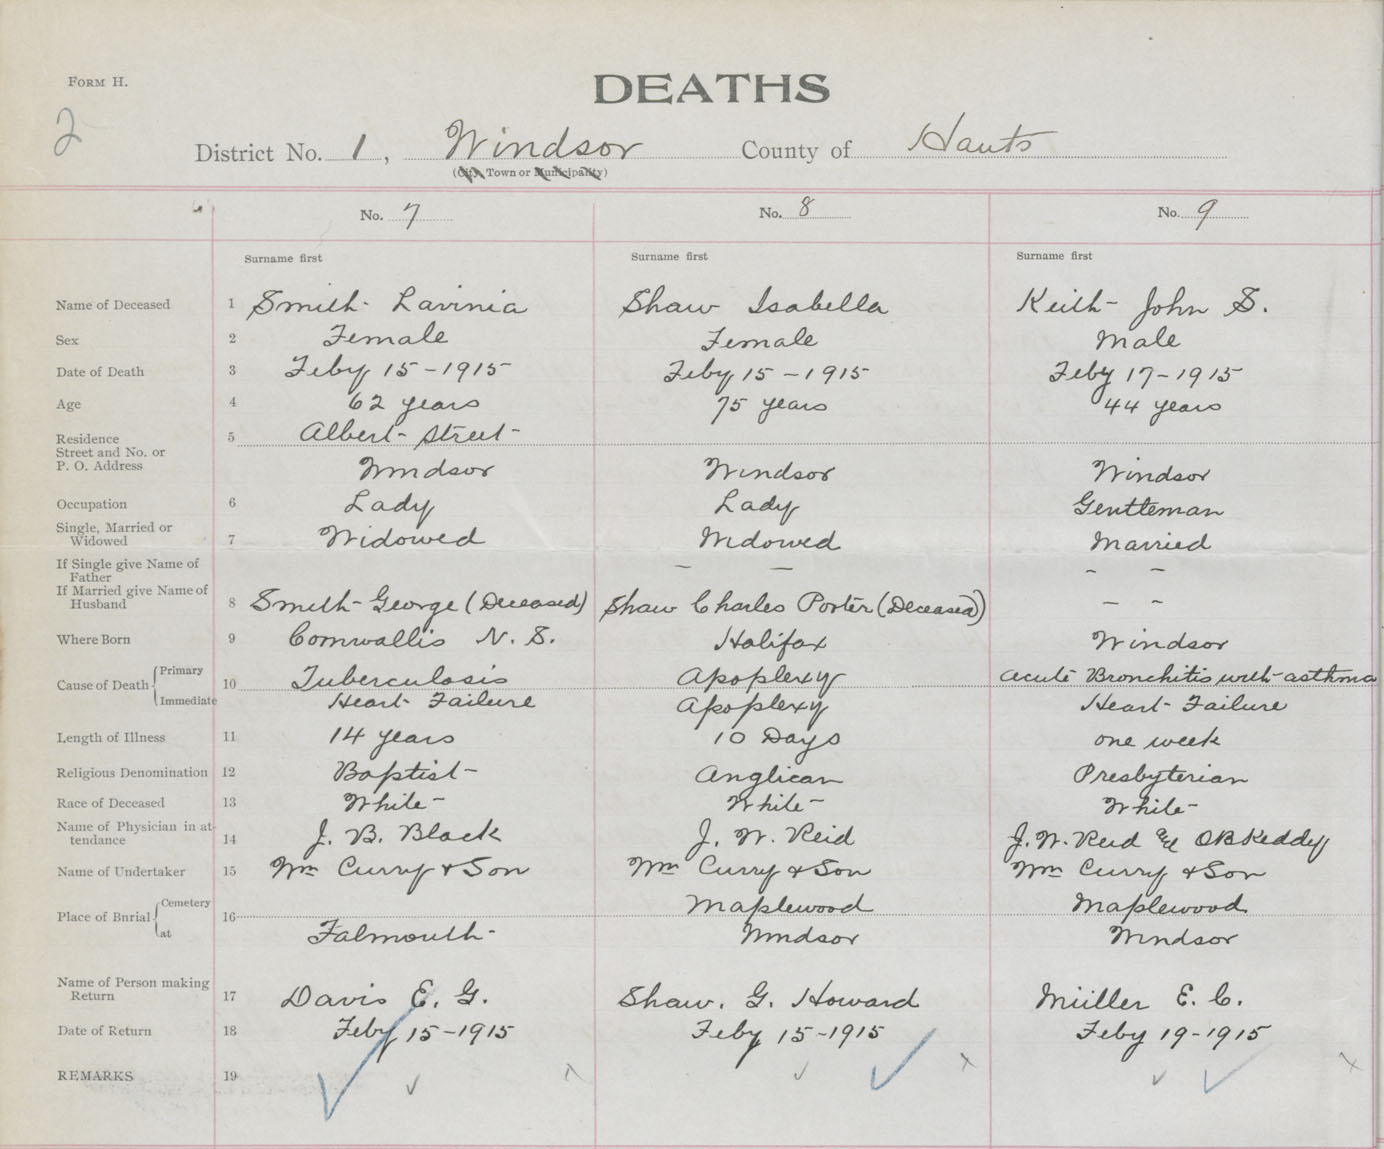 FORM H.
DEATHS
2
District No. 1, Windsor County of Hants
(City, Town or Municipality)
No. 7 No. 8 No. 9
Surname first Surname first Surname first
Name of Deceased 1 Smith Lavinia Shaw Isabella Keith John S.
Sex 2 Female Female Male
Date of Death 3 Feby 15-1915 Feby 15-1915 Feby 17-1915
Age 4 62 years 75 years 44 years
Residence 5 Albert Street
Street and No. or
P. O. Address Windsor Windsor Windsor
Occupation 6 Lady Lady Gentleman
Single, Married or
Widowed 7 Widowed Widowed Married
If Single give Name of
Father — — — —
If Married give Name of
Husband 8 Smith George (Deceased) Shaw Charles Porter (Deceased) — —
Where Born 9 Cornwallis N. S. Halifax Windsor
Cause of Death { Primary 10 Tuberculosis Apoplexy Acute Bronchitis with asthma
Immediate Heart Failure Apoplexy Heart Failure
Length of Illness 11 14 years 10 Days one week
Religious Denomination 12 Baptist Anglican Presbyterian
Race of Deceased 13 White White White
Name of Physician in at-
tendance 14 J. B. Black J. W. Reid J. W. Reid & O B Keddy
Name of Undertaker 15 Wm Curry & Son Wm Curry & Son Wm Curry & Son
Place of Burial { Cemetery 16 Maplewood Maplewood
at Falmouth Windsor Windsor
Name of Person making
Return 17 Davis E. G. Shaw. G. Howard Müller E. C.
Date of Return 18 Feby 15-1915 Feby 15-1915 Feby 19-1915
REMARKS 19